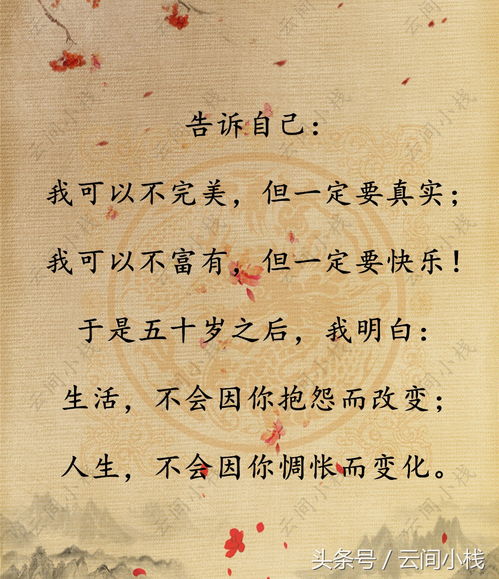 告诉自己：
我可以不完美，但一定要真实；
我可以不富有，但一定要快乐！
于是五十岁之后，我明白：
生活，不会因你抱怨而改变；
人生，不会因你惆怅而变化。
头条号／云间小栈
云间小栈